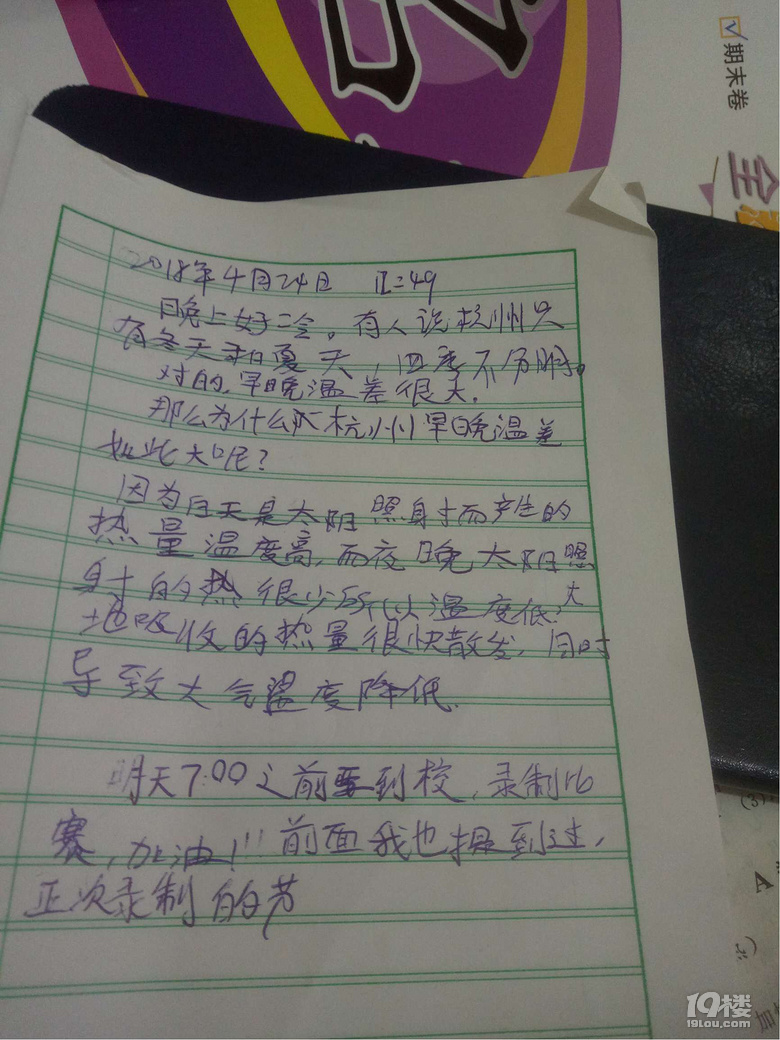 期末卷
全
2018年4月24日
晚上好冷。有人说杭州只
有冬天和夏天，四季不分明。
对的，早晚温差很大。
那么为什么杭州早晚温差
如此大呢？
因为白天是太阳照射而产生的
热量温度高，而夜晚太阳照
射的热很少所以温度低。大
地吸收的热量很快散发，同时
导致大气温度降低.
明天7:00之前要到校，录制比
赛，加油！！！前面我也提到过，
正次录制的节
(3)
A
19楼
19lou.com